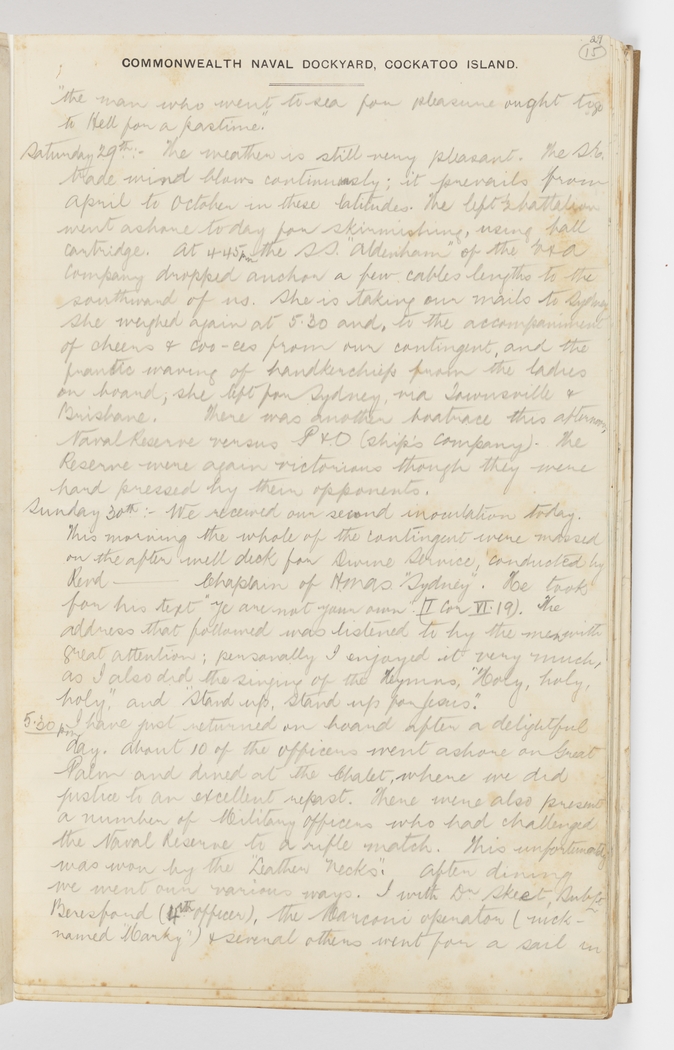 29
15
COMMONWEALTH NAVAL DOCKYARD, COCKATOO ISLAND.
"the man who went to sea for pleasure ought to go
to Hell for a pastime."
Saturday 29th:- The weather is still very pleasant. The S.E.
trade wind blows continuously; it prevails from
April to October in these latitudes. The left ½ battalion
went ashore today for skirmishing, using ball
cartridge. At 4.45 pm the S.S. "Aldenham" of the E & A
Company dropped anchor a few cables lengths to the
southward of us. She is taking our mails to Sydney.
She weighed again at 5.30 and, to the accompaniment
of cheers & coo-ees from our contingent, and the
frantic waving of handkerchiefs from the ladies
on board, she left for Sydney, via Townsville &
Brisbane. There was another boatrace this afternoon,
Naval Reserve versus P & O (ship's company). The
Reserve were again victorious though they were
hard pressed by their opponents.
Sunday 30th:- We received our second inoculation today.
This morning the whole of the contingent were massed
on the after well deck for Divine Service, conducted by
Revd ——— Chaplain of HMAS "Sydney". He took
for his text "Ye are not your own" (I Cor VI.19). The
address that followed was listened to by the men with
great attention; personally I enjoyed it very much,
as I also did the singing of the Hymns, "Holy, holy,
holy," and "Stand up, stand up for Jesus".
5.30 pm I have just returned on board after a delightful
day. About 10 of the officers went ashore on Great
Palm and dined at the Chalet, where we did
justice to an excellent repast. There were also present
a number of Military Officers who had challenged
the Naval Reserve to a rifle match. This unfortunately
was won by the "Leather Necks". After dining
we went our various ways. I with Dr Skeet,
Beresford (4th officer), the Marconi operator (nick-
named "Marky") & several others went for a sail in